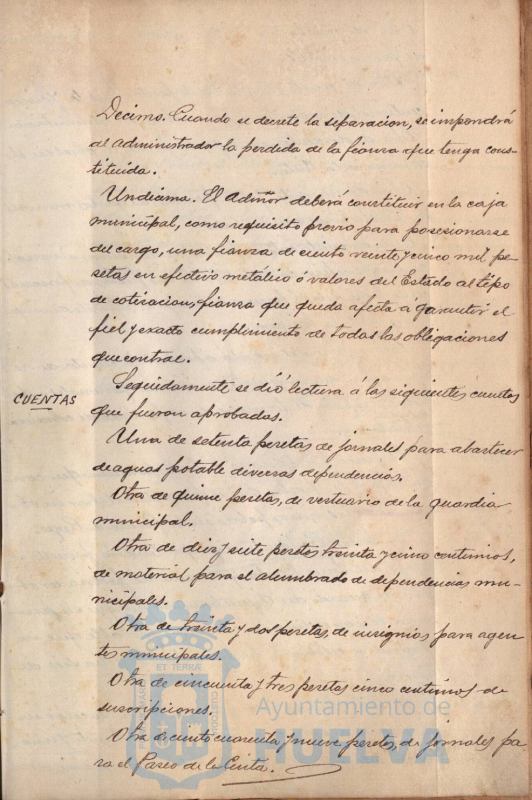 Decimo. Cuando se decrete la separacion, se impondrá
al administrador la perdida de la fianza que tenga cons-
tituida.
Undécima. El Admor deberá constituir en la caja
municipal, como requisito previo para posesionarse
del cargo, una fianza de ciento veinte y cinco mil pe-
setas en efectivo metalico ó valores del Estado al tipo
de cotizacion, fianza que queda afecta á garantir el
fiel y exacto cumplimiento de todas las obligaciones
que contrae.
CUENTAS
Seguidamente se dió lectura á las siguientes cuentas
que fueron aprobadas.
Una de setenta pesetas de jornales para abastecer
de aguas potable diversas dependencias.
Otra de quince pesetas, de vestuario de la guardia
municipal.
Otra de diez y siete pesetas treinta y cinco centimos,
de material para el alumbrado de dependencias mu-
nicipales.
Otra de treinta y dos pesetas, de insignias para agen-
tes municipales.
Otra de cincuenta y tres pesetas cinco centimos de
suscripciones.
Otra de ciento cuarenta y nueve pesetas, de jornales pa-
ra el Paseo de la Cinta.
Ayuntamiento de
HUELVA